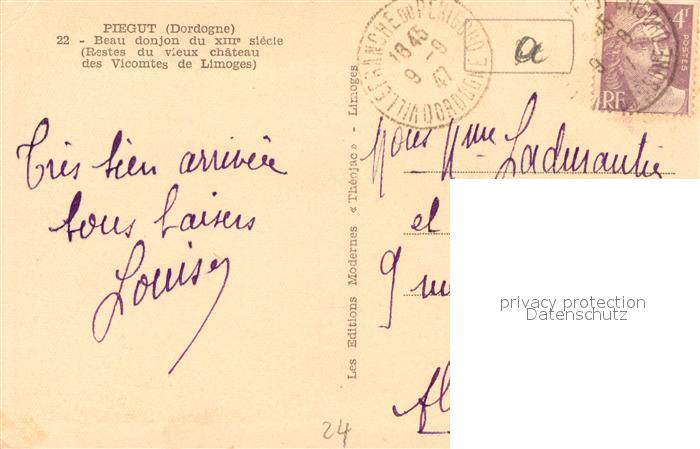 PIEGUT (Dordogne)
22 - Beau donjon du XIIIe siécle
(Restes du vieux château
des Vicomtes de Limoges)
Très bien arrivée
bons baisers
Louise
24
Les Editions Modernes « Théojac » - Limoges
VILLEFRANCHE DU PERIGORD
DORDOGNE
18 45
9 - 9
47
a
4F
POSTES
RF
18 45
9 9
Mme
et
9
privacy protection
Datenschutz